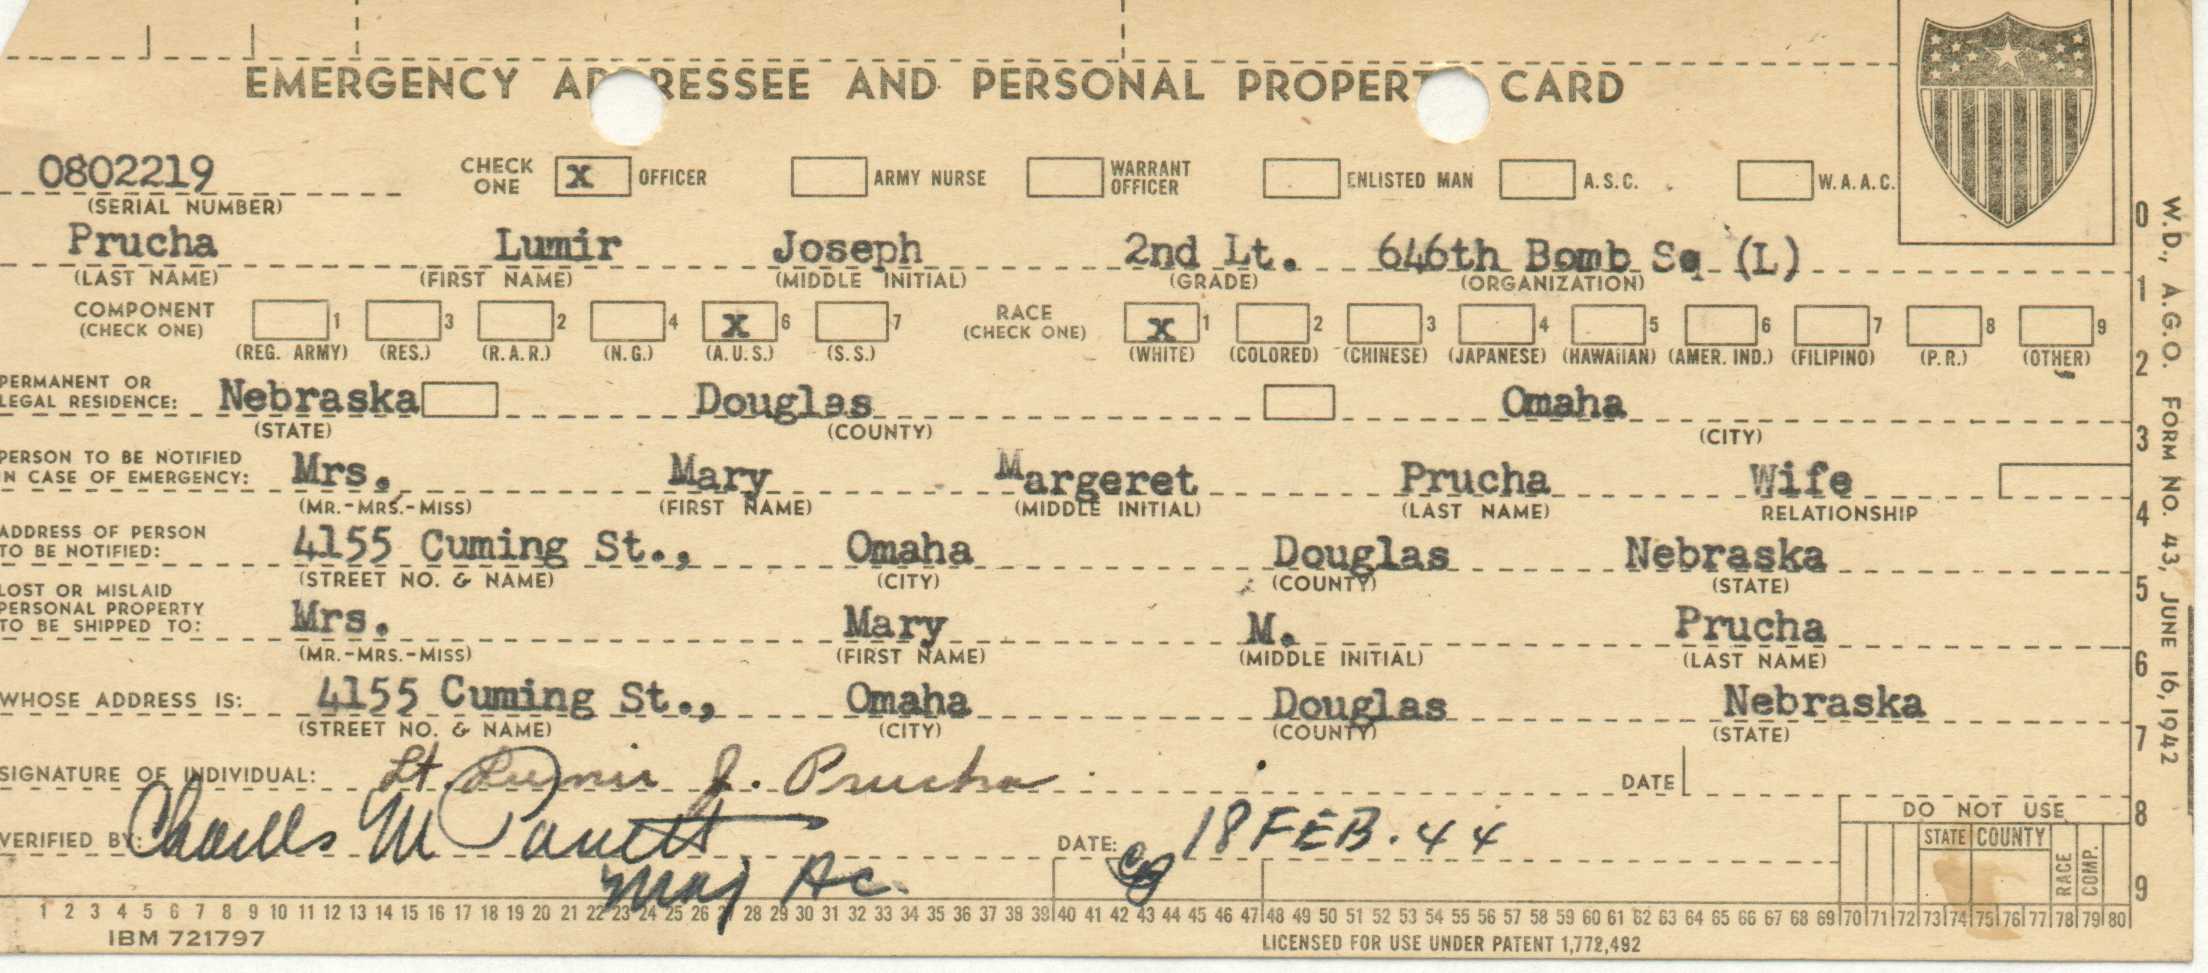 EMERGENCY AD RESSEE AND PERSONAL PROPERT CARD
0802219 CHECK ONE x OFFICER ARMY NURSE WARRANT OFFICER ENLISTED MAN A.S.C. W.A.A.C.
(SERIAL NUMBER)
Prucha Lumir Joseph 2nd Lt. 646th Bomb Sq (L)
(LAST NAME) (FIRST NAME) (MIDDLE INITIAL) (GRADE) (ORGANIZATION)
COMPONENT (CHECK ONE) 1 3 2 4 x 6 7 RACE (CHECK ONE) x 1 2 3 4 5 6 7 8 9
(REG. ARMY) (RES.) (R.A.R.) (N.G.) (A.U.S.) (S.S.) (WHITE) (COLORED) (CHINESE) (JAPANESE) (HAWAIIAN) (AMER. IND.) (FILIPINO) (P.R.) (OTHER)
PERMANENT OR LEGAL RESIDENCE: Nebraska Douglas Omaha
(STATE) (COUNTY) (CITY)
PERSON TO BE NOTIFIED IN CASE OF EMERGENCY: Mrs. Mary Margeret Prucha Wife
(MR.-MRS.-MISS) (FIRST NAME) (MIDDLE INITIAL) (LAST NAME) RELATIONSHIP
ADDRESS OF PERSON TO BE NOTIFIED: 4155 Cuming St., Omaha Douglas Nebraska
(STREET NO. & NAME) (CITY) (COUNTY) (STATE)
LOST OR MISLAID PERSONAL PROPERTY TO BE SHIPPED TO: Mrs. Mary M. Prucha
(MR.-MRS.-MISS) (FIRST NAME) (MIDDLE INITIAL) (LAST NAME)
WHOSE ADDRESS IS: 4155 Cuming St., Omaha Douglas Nebraska
(STREET NO. & NAME) (CITY) (COUNTY) (STATE)
SIGNATURE OF INDIVIDUAL: Lt. Lumir J. Prucha DATE
DO NOT USE
VERIFIED BY: Charles M DATE: 18 FEB. 44
STATE COUNTY RACE COMP.
Maj AC.
1 2 3 4 5 6 7 8 9 10 11 12 13 14 15 16 17 18 19 20 21 22 23 24 25 26 27 28 29 30 31 32 33 34 35 36 37 38 39 40 41 42 43 44 45 46 47 48 49 50 51 52 53 54 55 56 57 58 59 60 61 62 63 64 65 66 67 68 69 70 71 72 73 74 75 76 77 78 79 80
IBM 721797 LICENSED FOR USE UNDER PATENT 1,772,492
0 1 2 3 4 5 6 7 8 9
W.D., A.G.O. FORM NO. 43, JUNE 16, 1942